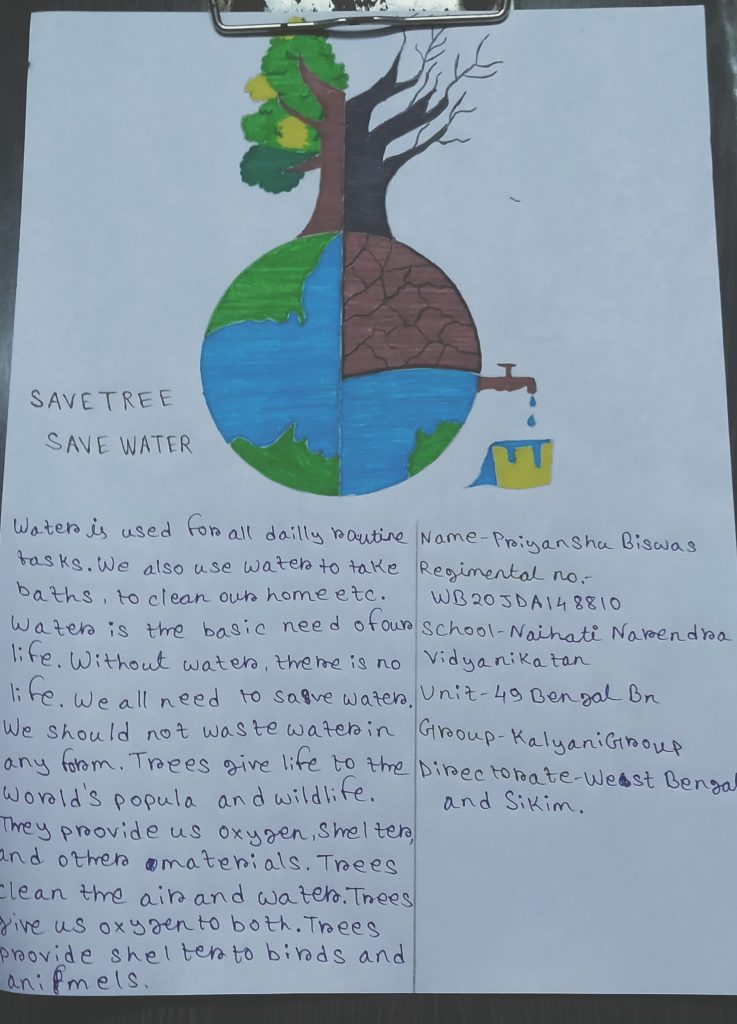 SAVE TREE
SAVE WATER
Water is used for all dailly routine
tasks. We also use water to take
baths, to clean our home etc.
Water is the basic need of our
life. Without water, there is no
life. We all need to save water.
We should not waste water in
any form. Trees give life to the
World's popula and wildlife.
They provide us oxygen, shelter,
and other materials. Trees
clean the air and water. Trees
give us oxygen to both. Trees
provide shelter to birds and
animels.
Name-Priyanshu Biswas
Regimental no.-
WB20JDA148810
School-Naihati Narendra
Vidyanikatan
Unit-49 Bengal Bn
Group-Kalyani Group
Directorate-West Bengal
and Sikim.